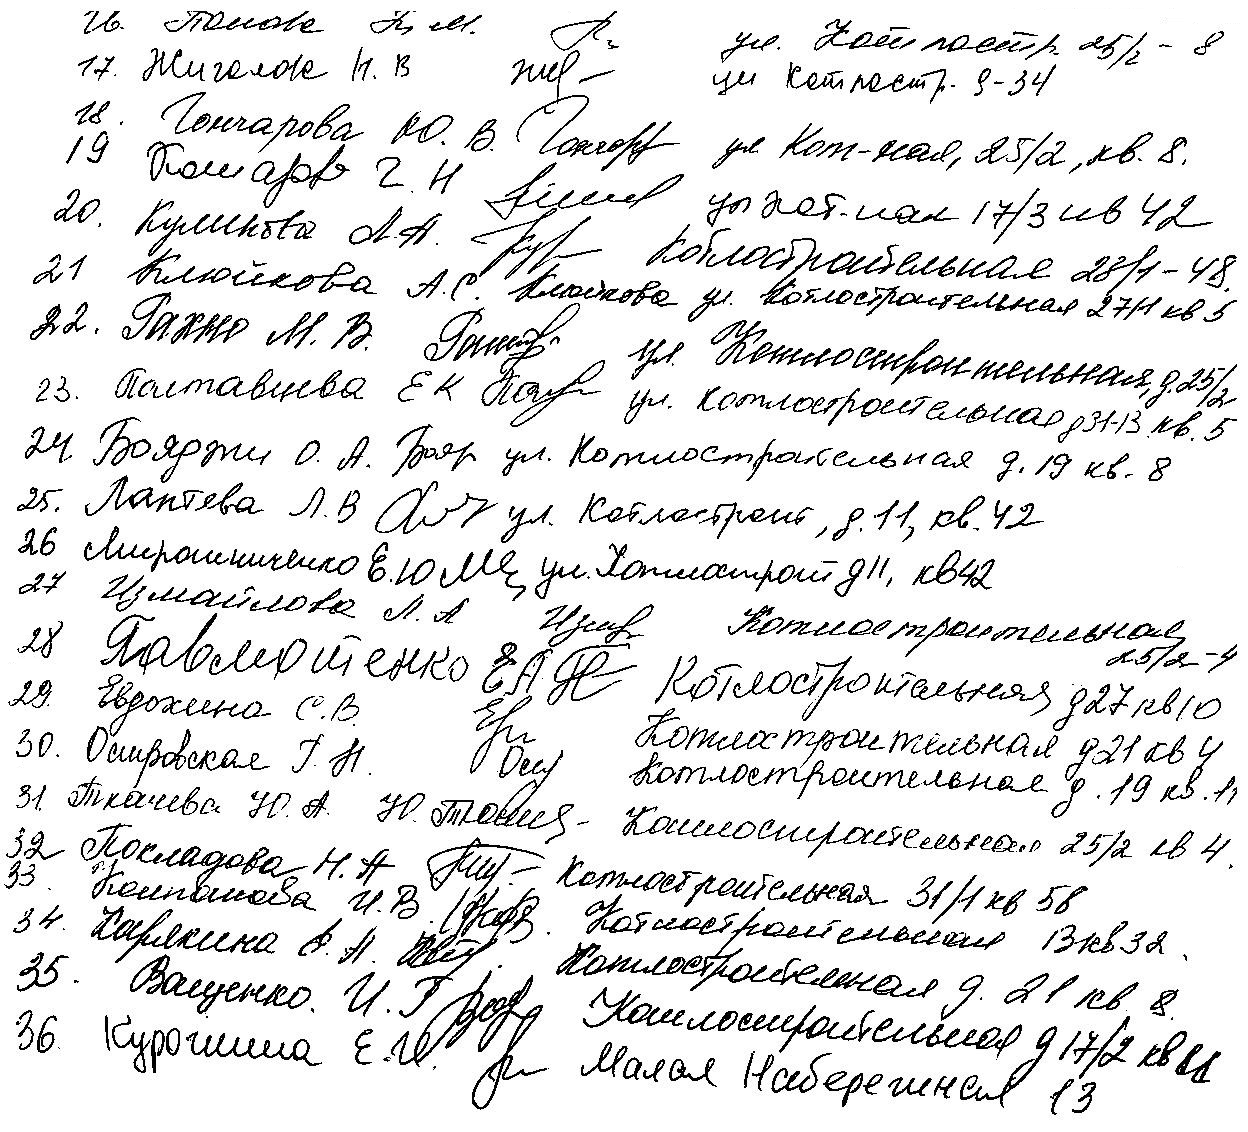 16. Панова Н. М. ул. Котлостр. 25/2 - 8
17. Жиголова Н. В ул Котлостр. 9-34
18. Гончарова Ю. В. Гончар ул Кот-ная, 25/2, кв. 8.
19 Комарова Г. Н ул Кот-ная 17/3 кв 42
20. Куликова Л. А. Котлостроительная 28/1 - 48.
21 Клюйкова А. С. Клюйкова ул. Котлостроительная 27/1 кв 5
22. М. В. ул. Котлостроительная, д. 25/2
23. Полтавцева Е К ул. Котлостроительная д 31-13 кв. 5
24. Бояджи О. А. Бояр ул. Котлостроительная д. 19 кв. 8
25. Лаптева Л. В ул. Котлостроит, д. 11, кв. 42
26 Мирошниченко Е. Ю ул. Котлострой д 11, кв 42
27 Измайлова Л. А Изм Котлостроительная
25/2 - 4
28 Павлютенко Е А Котлостроительная д 27 кв 10
29. Евдохина С. В. Котлостроительная д 21 кв 4
30. Островская Г. Н. Ост Котлостроительная д. 19 кв. 11
31. Ткачева Ю. А. Ю. Котлостроительная 25/2 кв 4.
32 Покладова Н. А Котлостроительная 31/1 кв 58
33. Колпакова И. В. Котлостроительная 13 кв 32.
34. Карякина А. Котлостроительная д. 21 кв 8.
35. Ващенко. И. Г Котлостроительная д 17/2 кв 11
36. Курочкина Е. И. Малая Набережная 13